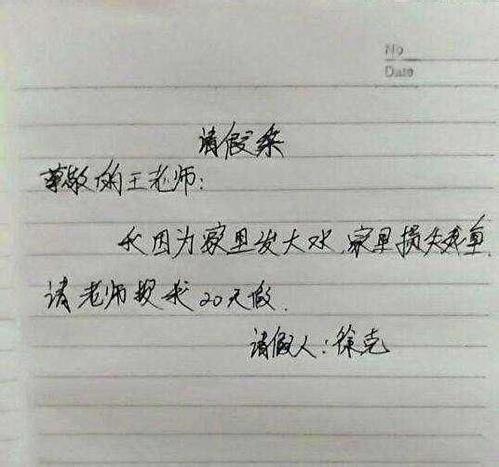 No
Date
请假条
尊敬的王老师:
我因为家里发大水,家里损失惨重.
请老师批我20天假.
请假人:徐克